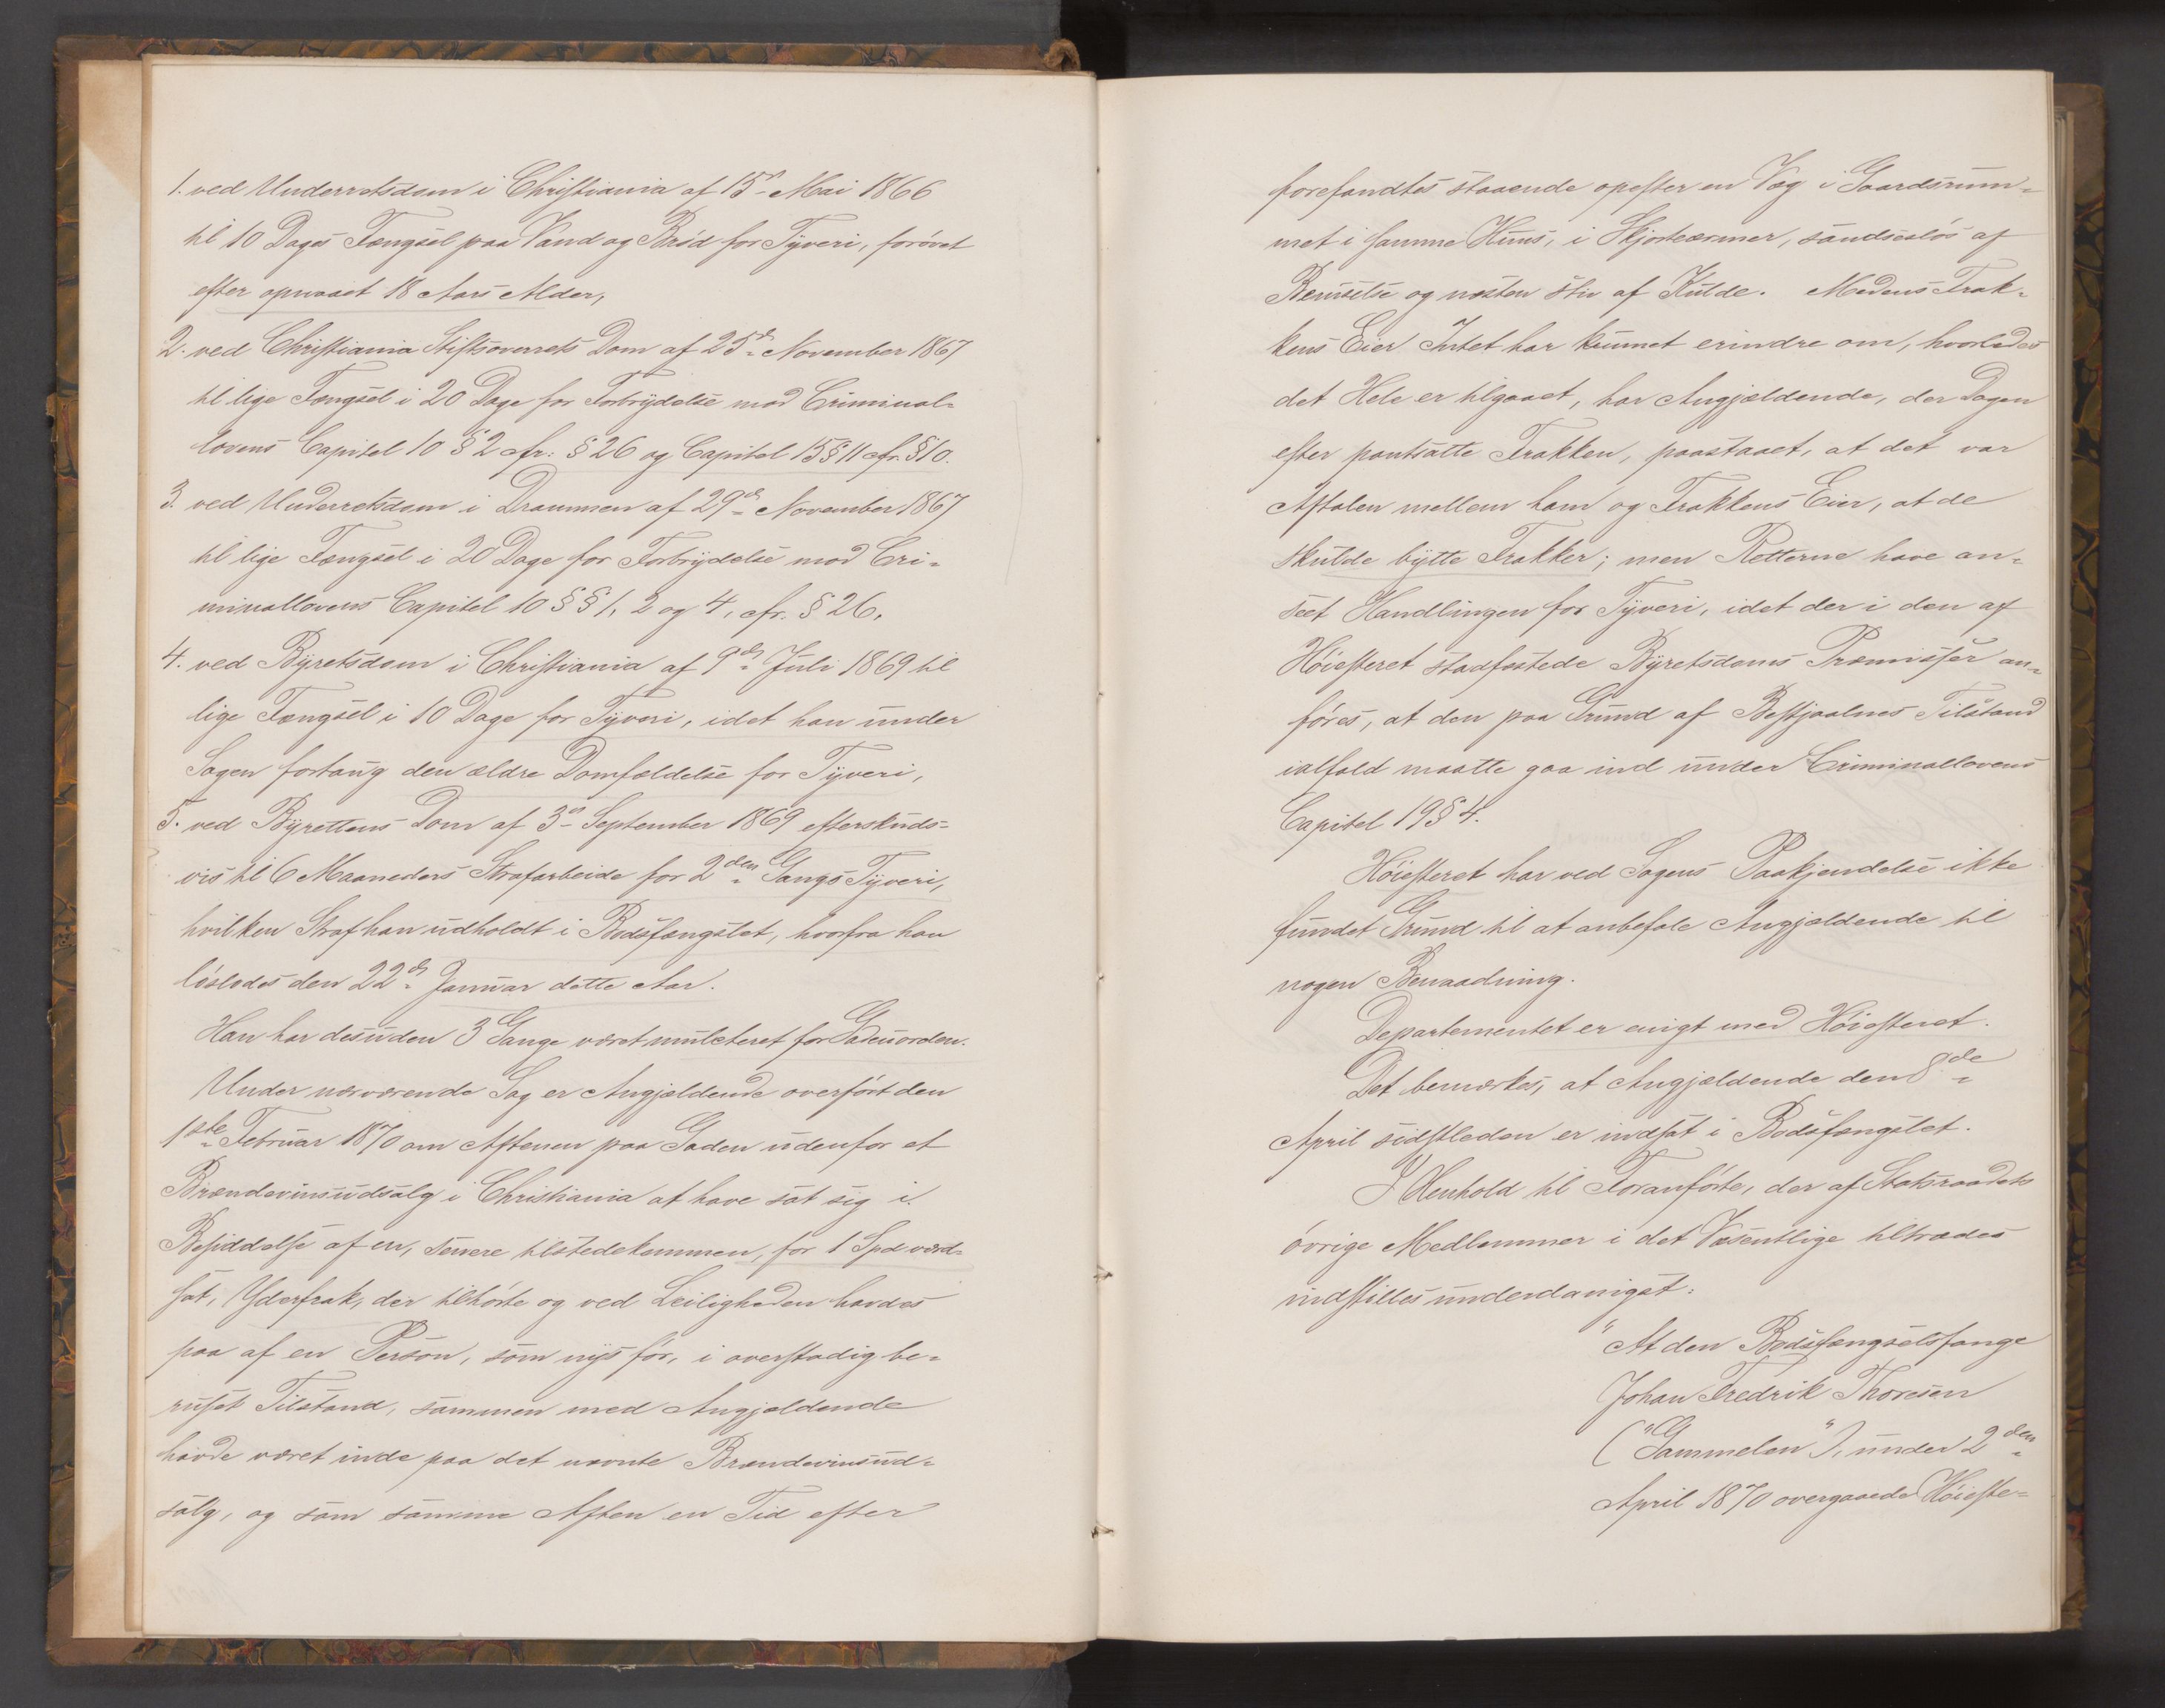 1. ved Underretsdom i Christiania af 15de Mai 1866
til 10 Dages Fængsel paa Vand og Brød for Tyveri, forøvet
efter opnaaet 18 Aars Alder,
2. ved Christiania Stiftsoverrets Dom af 25de November 1867
til lige Fængsel i 20 Dage for Forbrydelse mod Criminal-
lovens Capitel 10 § 2 cfr: § 26 og Capitel 15 § 11 cfr. § 10.
3. ved Underretsdom i Drammen af 29de November 1867
til lige Fængsel i 20 Dage for Forbrydelse mod Cri-
minallovens Capitel 10 §§ 1, 2 og 4, cfr. § 26.
4. ved Byretsdom i Christiania af 9de Juli 1869 til
lige Fængsel i 10 Dage for Tyveri, idet han under
Sagen fortaug den ældre Domfældelse for Tyveri,
5. ved Byrettens Dom af 3de September 1869 efterskuds-
vis til 6 Maaneders Strafarbeide for 2den Gangs Tyveri,
hvilken Straf han udholdt i Bodsfængslet, hvorfra han
løslodes den 22de Januar dette Aar.
Han har desuden 3 Gange været mulcteret for Gadeuorden.
Under nærværende Sag er Angjældende overført den
1ste Februar 1870 om Aftenen paa Gaden udenfor et
Brændeviinsudsalg i Christiania at have sat sig i
Besiddelse af en, senere tilstedekommen, for 1 Spd værd-
sat, Yderfrak, der tilhørte og ved Leiligheden havdes
paa af en Person, som nys før, i overstadig be-
ruset Tilstand, sammen med Angjældende
havde været inde paa det nævnte Brændeviinsud-
salg, og som samme Aften en Tid efter
forefandtes staaende opefter en Væg i Gaardsrum-
met i samme Huus, i Skjorteærmer, sandsesløs af
Beruselse og næsten stiv af Kulde. Medens Frak-
kens Eier Intet har kunnet erindre om, hvorledes
det Hele er tilgaaet, har Angjældende, der Dagen
efter pantsatte Frakken, paastaaet, at det var
Aftalen mellem ham og Frakkens Eier, at de
skulde bytte Frakker; men Retterne have an-
seet Handlingen for Tyveri, idet der i den af
Høiesteret stadfæstede Byretsdoms Præmisser an-
føres, at den paa Grund af Bestjaalnes Tilstand
ialfald maatte gaa ind under Criminallovens
Capitel 19 § 4.
Høiesteret har ved Sagens Paakjendelse ikke
fundet Grund til at anbefale Angjældende til
nogen Benaadning.
Departementet er enigt med Høiesteret.
Det bemærkes, at Angjældende den 8de
April sidstleden er indsat i Bodsfængslet.
I Henhold til Foranførte, der af Statsraadets
øvrige Medlemmer i det Væsentlige tiltrædes
indstilles underdanigst:
"At den Bodsfængselsfange
Johan Fredrik Thoresen
("Gammelen"), under 2den
April 1870 overgaaede Høieste-